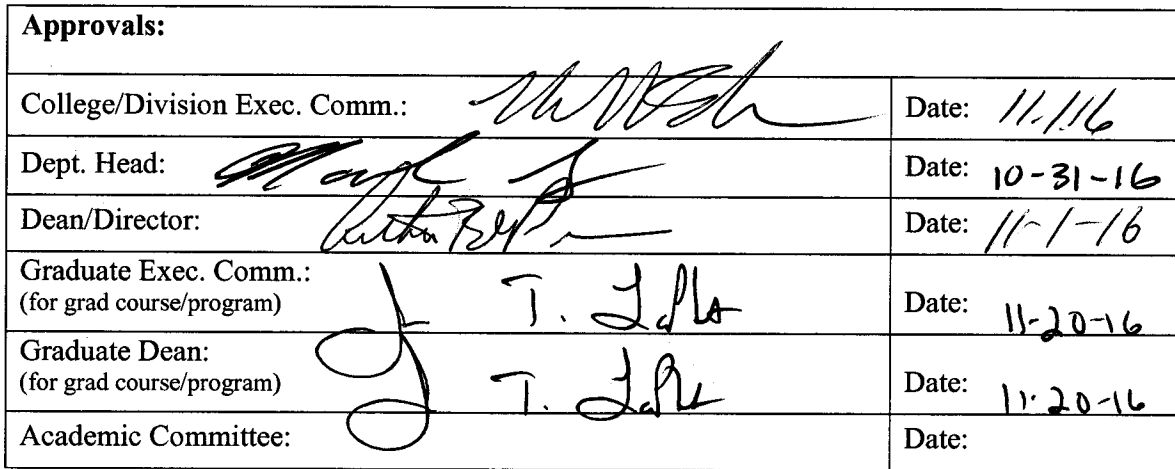 Approvals:
College/Division Exec. Comm.: Date: 11.1.16
Dept. Head: Date: 10-31-16
Dean/Director: Date: 11-1-16
Graduate Exec. Comm.:
(for grad course/program) T. Date: 11-20-16
Graduate Dean:
(for grad course/program) T. Date: 11-20-16
Academic Committee: Date: